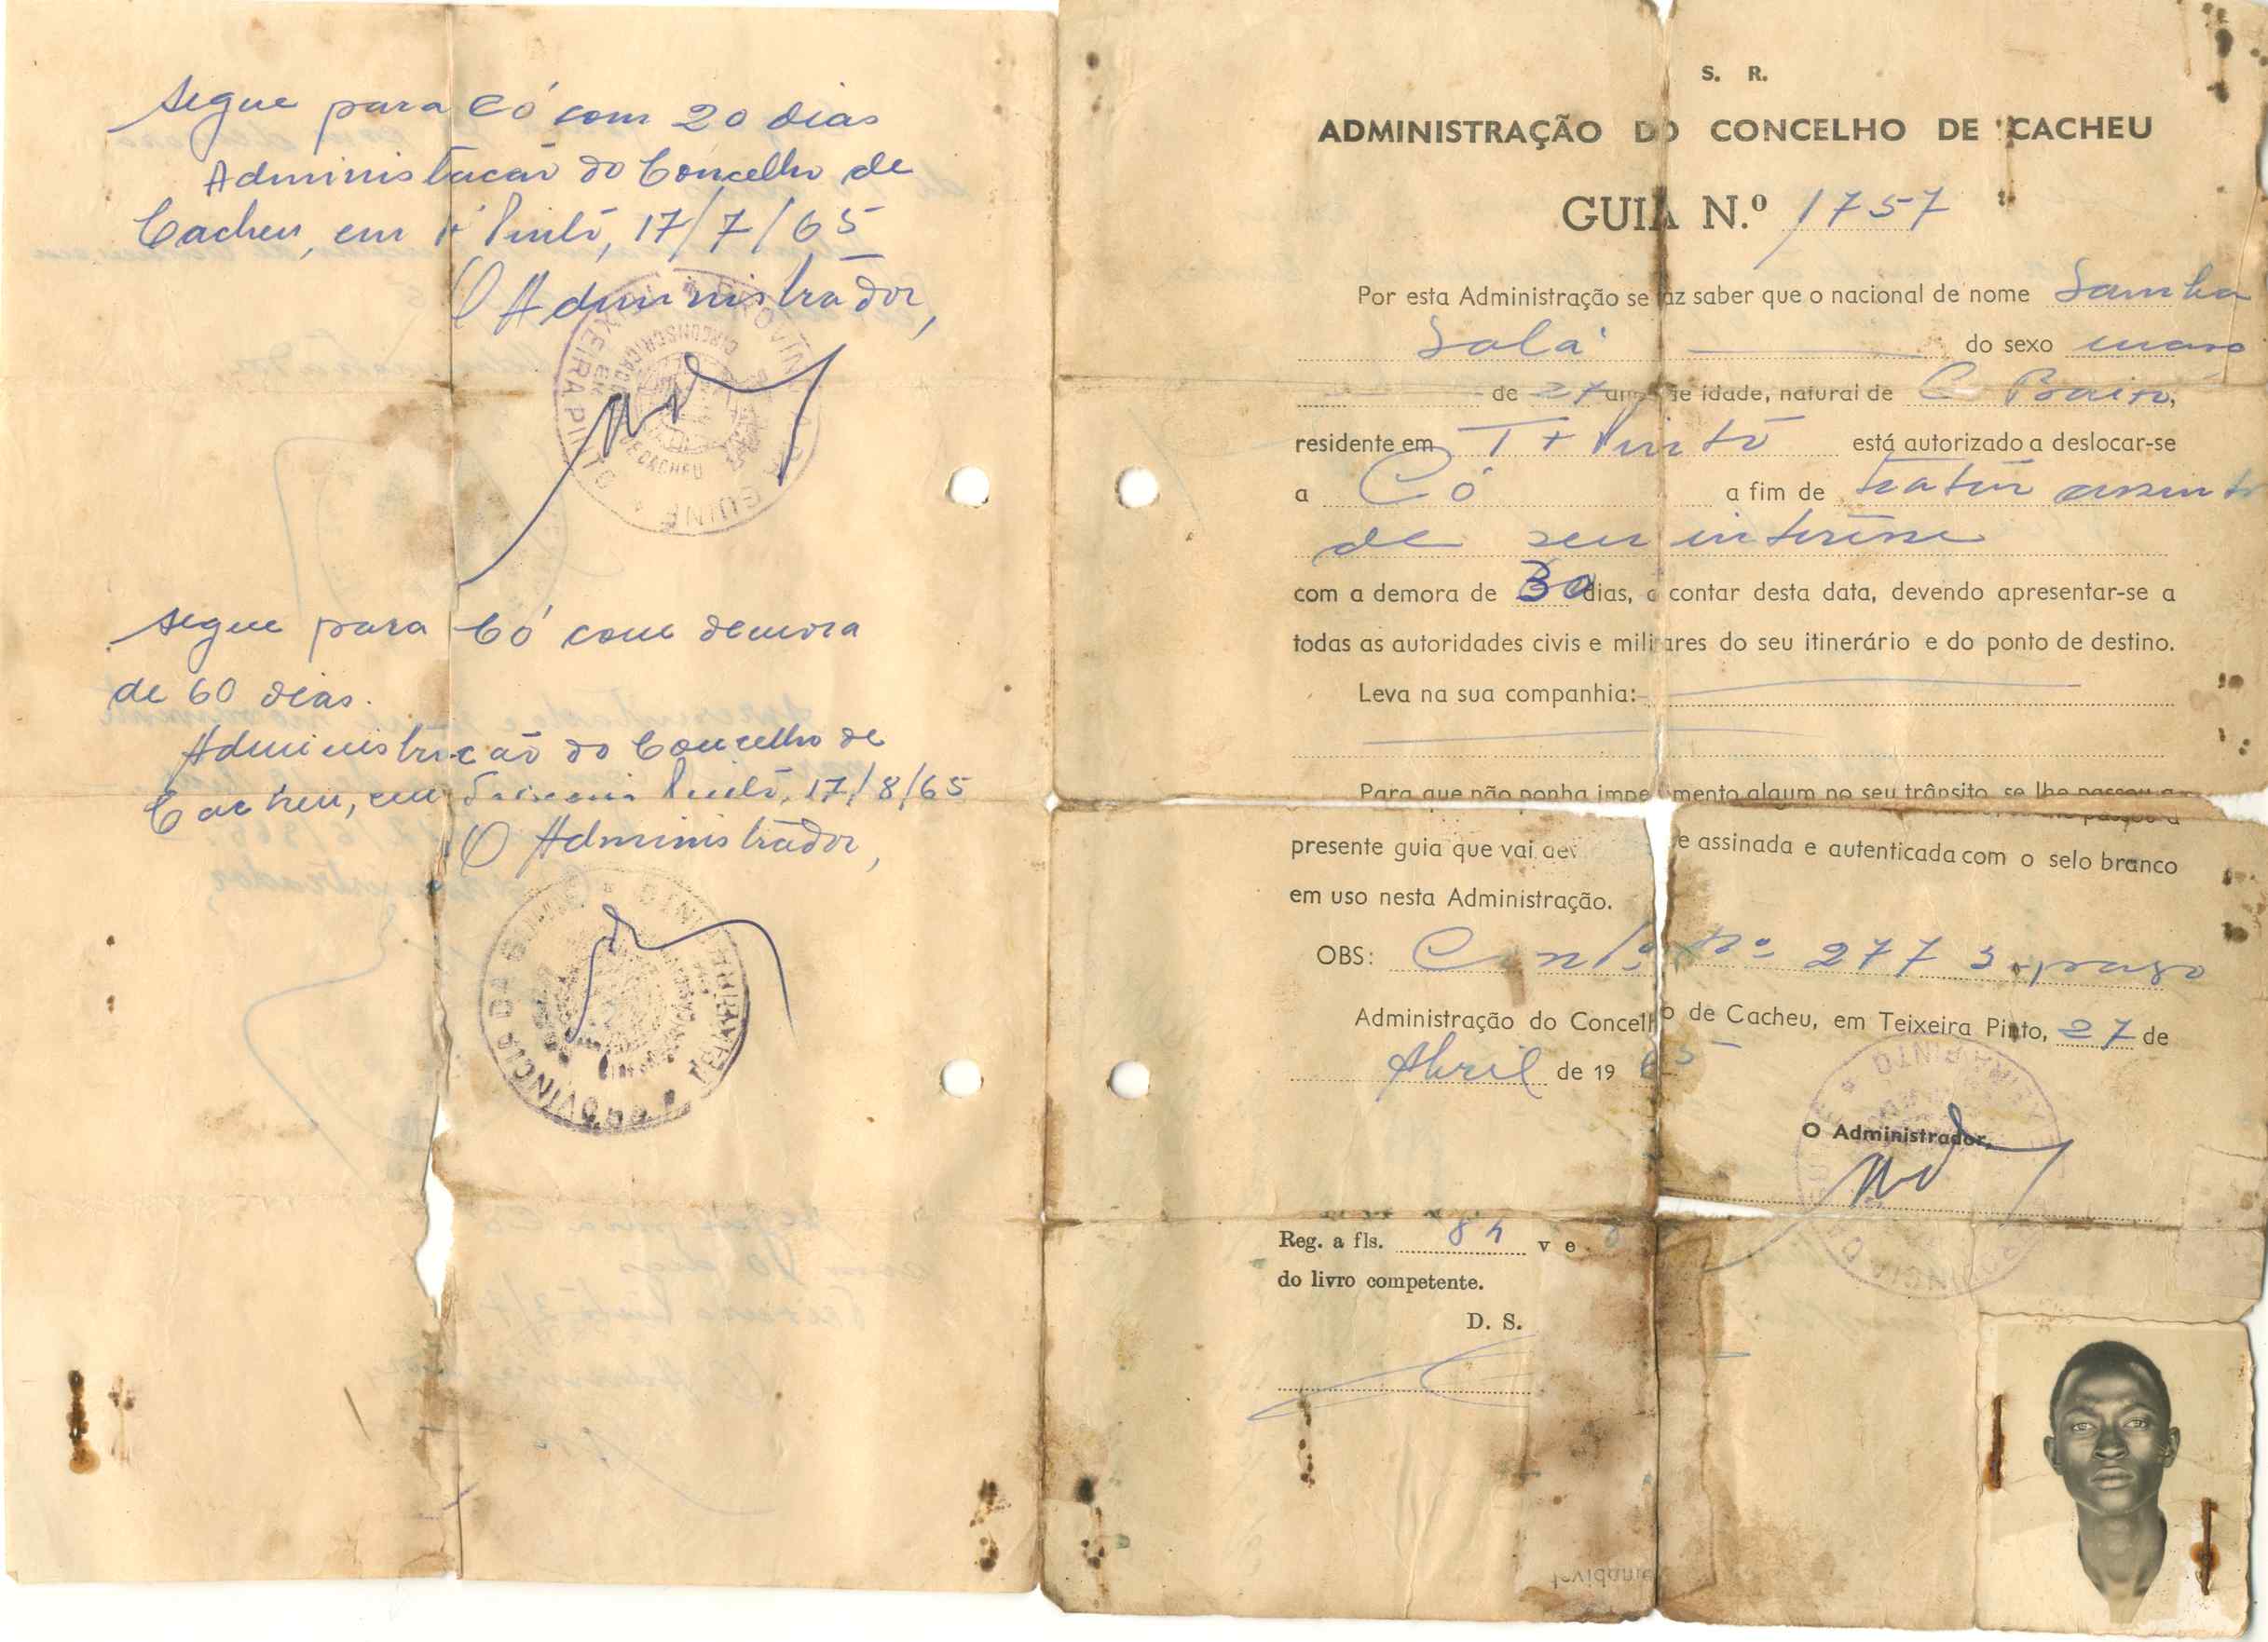 segue para Có com 20 dias
Administracão do Concelho de
Cacheu, em Pinto, 17/7/65
O Administrador,
PROVINCIA DA GUINÉ
TEIXEIRA PINTO
CIRCUNSCRIÇÃO DE CACHEU
segue para Có com demora
de 60 dias.
Administracão do Concelho de
Cacheu, em Teixeira Pinto, 17/8/65
O Administrador,
PROVINCIA DA GUINÉ
S. R.
ADMINISTRAÇÃO DO CONCELHO DE CACHEU
GUIA N.º 1757
Por esta Administração se faz saber que o nacional de nome Samba
Salá do sexo masc
de 27 anos de idade, natural de C Baixo,
residente em T+ Pinto está autorizado a deslocar-se
a Có a fim de tratar assunto
de seu interesse
com a demora de 30 dias, a contar desta data, devendo apresentar-se a
todas as autoridades civis e militares do seu itinerário e do ponto de destino.
Leva na sua companhia:
Para que não ponha impedimento algum no seu trânsito, se lhe passou a
presente guia que vai dev e assinada e autenticada com o selo branco
em uso nesta Administração.
OBS: Nº 2773
Administração do Concelho de Cacheu, em Teixeira Pinto, 27 de
Abril de 1965
O Administrador,
TEIXEIRA PINTO
PROVINCIA DA GUINÉ
Reg. a fls. 84 v e
do livro competente.
D. S.